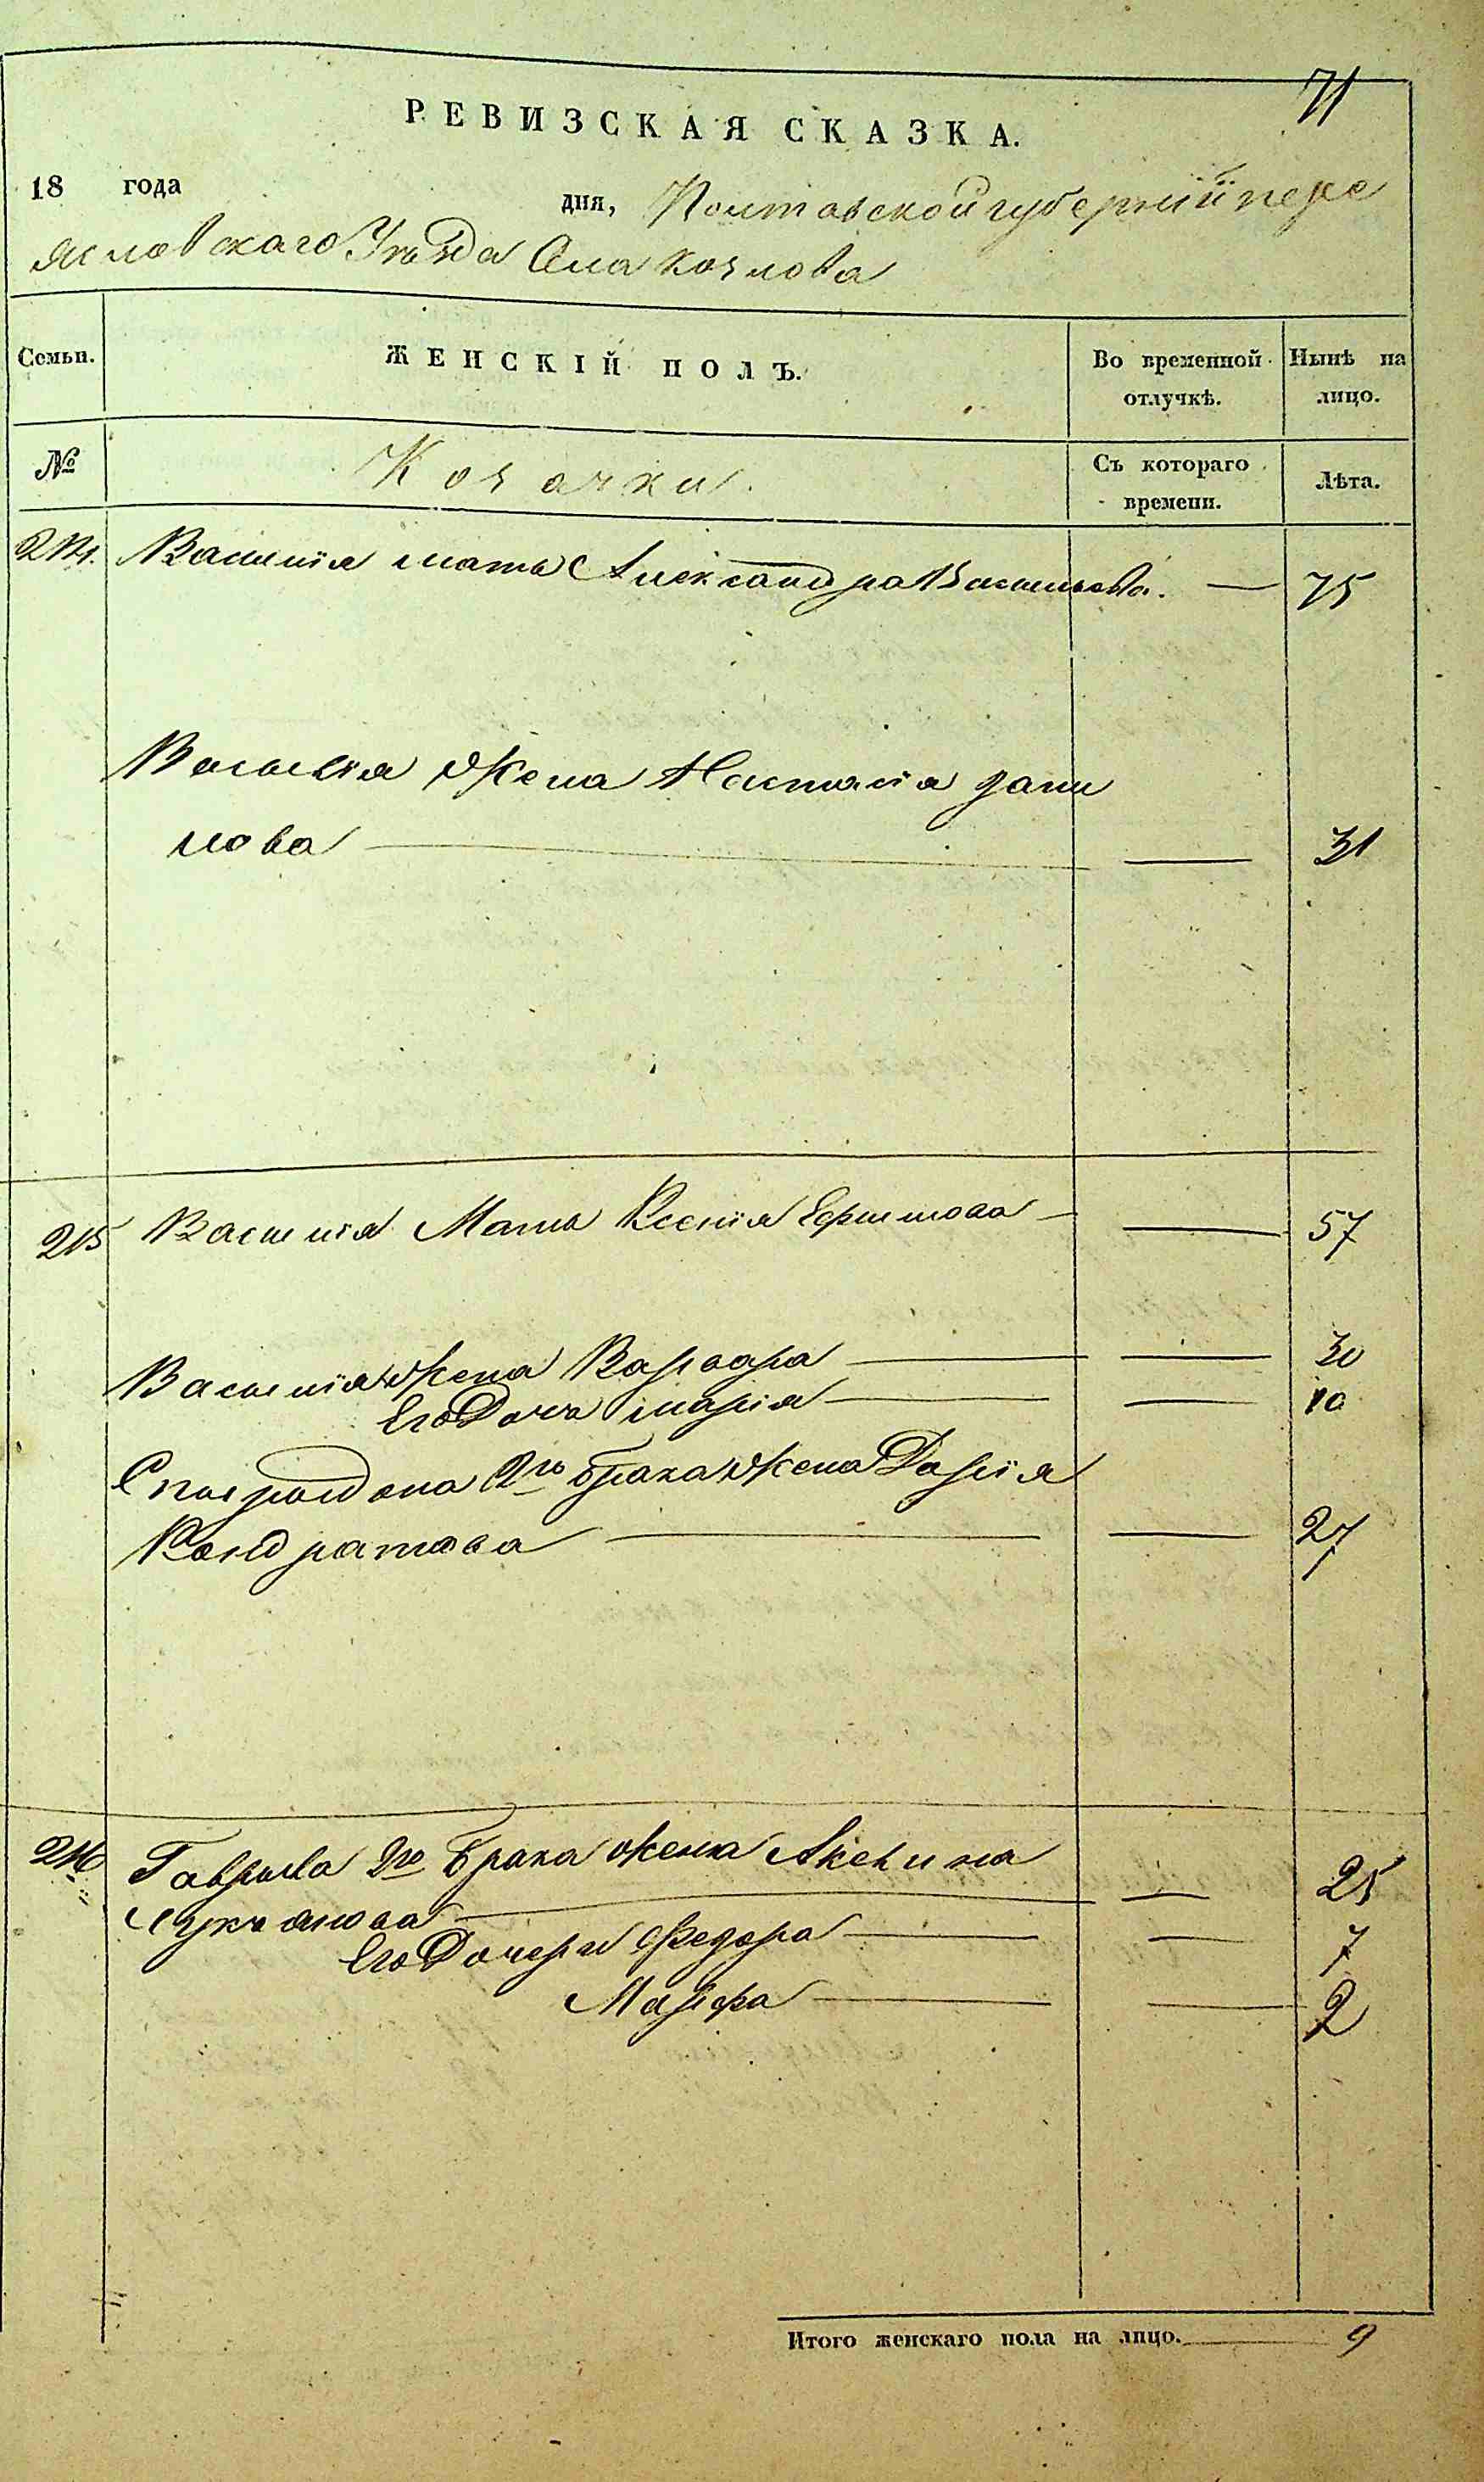 71
РЕВИЗСКАЯ СКАЗКА.
18 года дня, Полтавской губерніи пере
яславскаго Уѣзда Села козлова
Семьи. ЖЕНСКІЙ ПОЛЪ. Во временной отлучкѣ. Нынѣ на лицо.
№ Козачки. Съ котораго времени. Лѣта.
214. Василія мать Александра Васильева. — 75
Василія Жена Настасія дани
лова — 31
215 Василія Мать Ксенія Ефимова — 57
Василія Жена Варвара — 30
Его Дочь марія — 10
Спиридона 2го брака Жена Дарія
Кондратова — 27
216 Гаврила 2го брака жена Акелина
Лукянова — 25
Его Дочери Федора — 7
Марфа — 2
Итого женскаго пола на лицо. 9